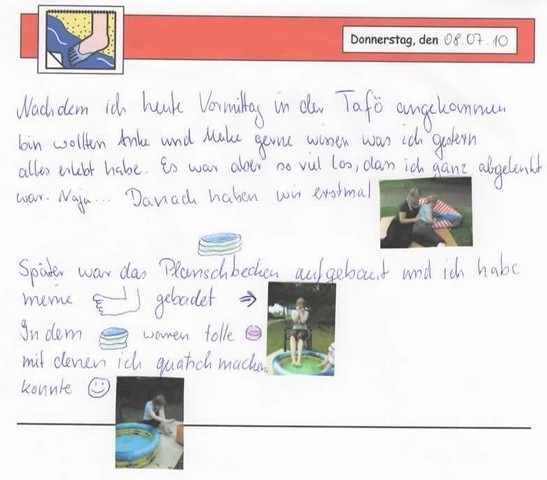 Donnerstag, den 08.07.10
Nachdem ich heute Vormittag in der Tafö angekommen
bin wollten Anke und Meike gerne wissen was ich gestern
alles erlebt habe. Es war aber so viel los, dass ich ganz abgelenkt
war. Naja... Danach haben wir erstmal
Später war das Planschbecken aufgebaut und ich habe
meine gebadet
In dem waren tolle
mit denen ich quatsch machen
konnte